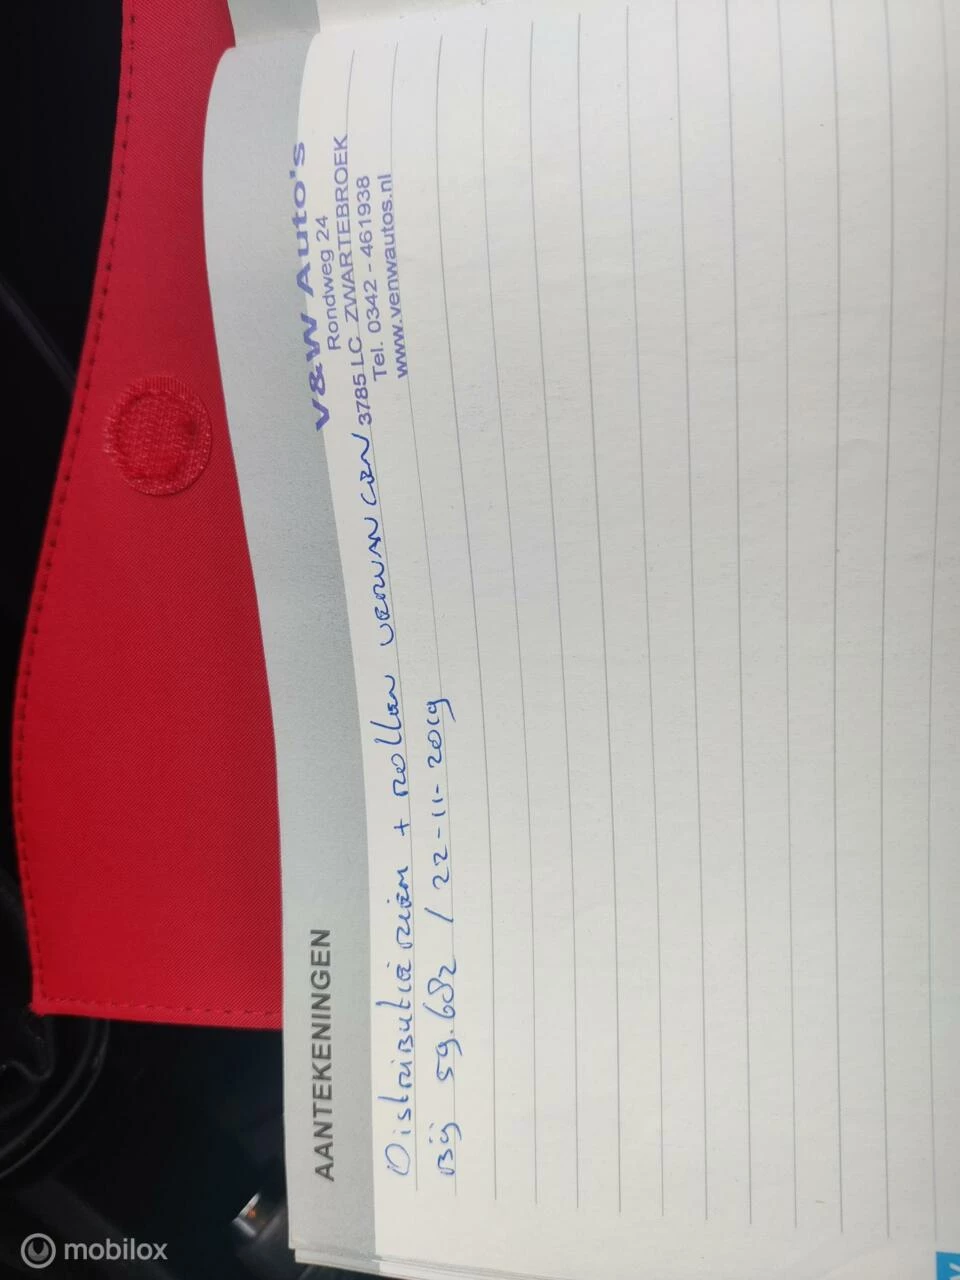 AANTEKENINGEN
V&W Auto's
Rondweg 24
3785 LC ZWARTEBROEK
Tel. 0342 - 461938
www.venwautos.nl
Distributieriem + rollen vervangen
Bij 59.682 / 22-11-2019
mobilox